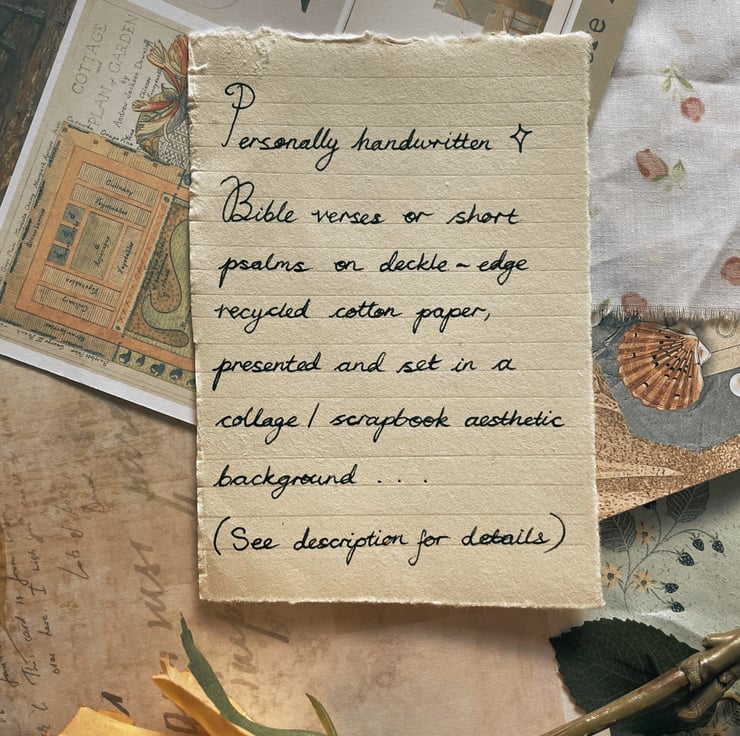 Personally handwritten
Bible verses or short
psalms on deckle-edge
recycled cotton paper,
presented and set in a
collage / scrapbook aesthetic
background . . .
(See description for details)
COTTAGE
and
PLAN of GARDEN
by
Culinary
Vegetables
Vegetables
Culinary